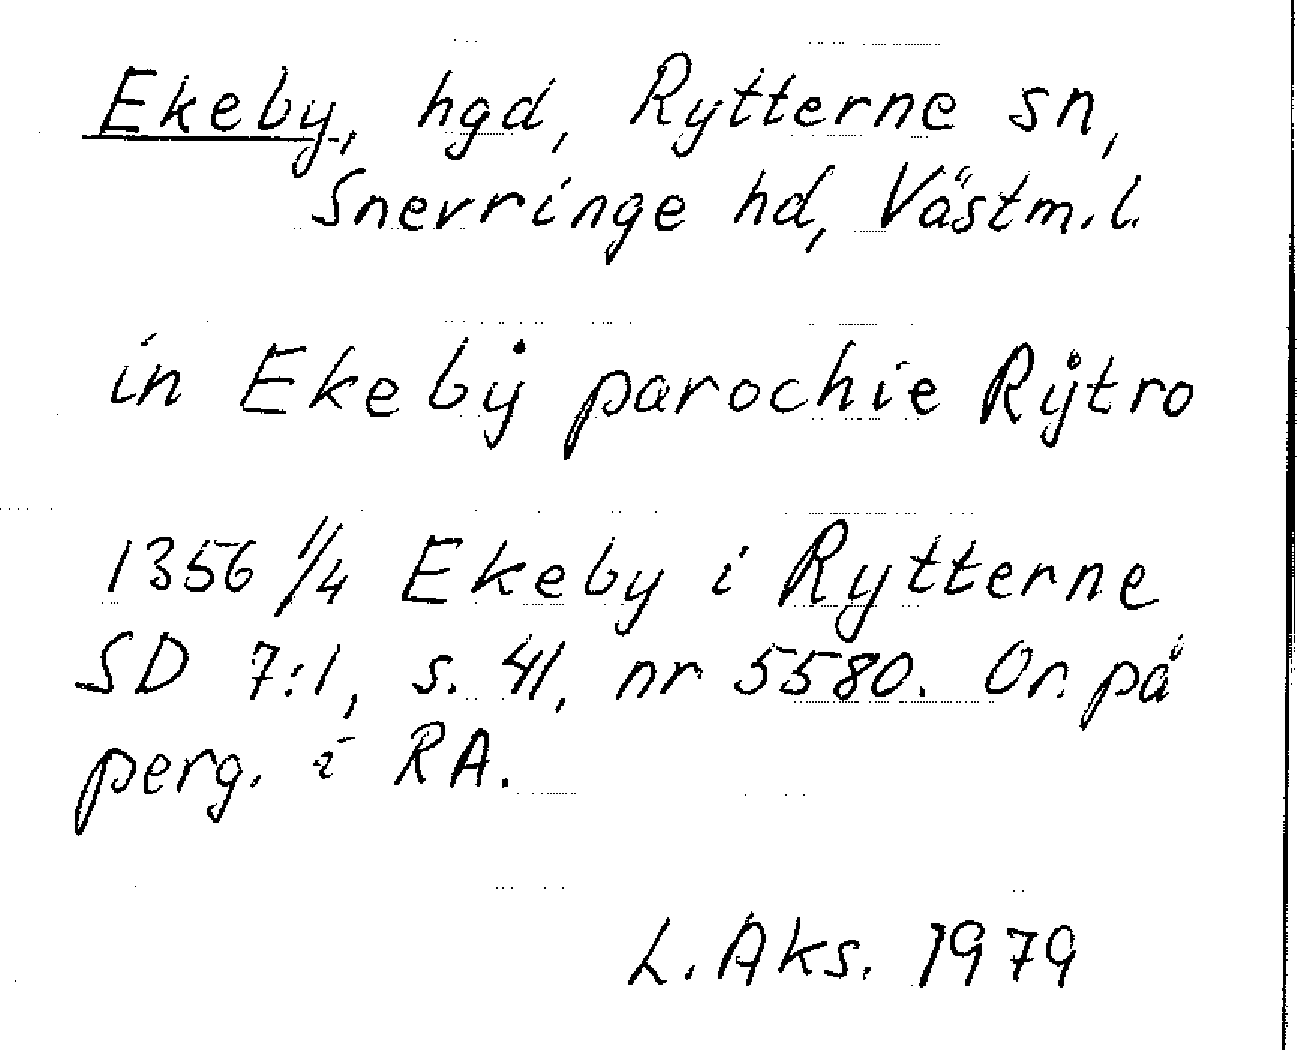 Ekeby, hgd, Rytterne sn,
Snevringe hd, Västm.l.
in Ekebẏ parochie Rẙtro
1356 1/4 Ekeby i Rytterne
SD 7:1, s. 41, nr 5580. Or. på
perg. i RA.
L. Aks. 1979